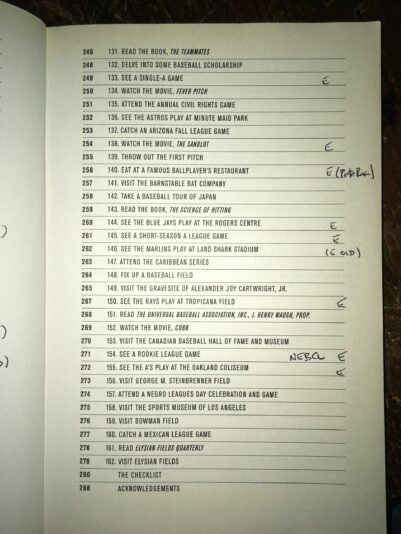 246 131. READ THE BOOK, THE TEAMMATES
248 132. DELVE INTO SOME BASEBALL SCHOLARSHIP
249 133. SEE A SINGLE-A GAME E
250 134. WATCH THE MOVIE, FEVER PITCH
251 135. ATTEND THE ANNUAL CIVIL RIGHTS GAME
252 136. SEE THE ASTROS PLAY AT MINUTE MAID PARK
253 137. CATCH AN ARIZONA FALL LEAGUE GAME
254 138. WATCH THE MOVIE, THE SANDLOT E
255 139. THROW OUT THE FIRST PITCH
256 140. EAT AT A FAMOUS BALLPLAYER'S RESTAURANT E
257 141. VISIT THE BARNSTABLE BAT COMPANY
258 142. TAKE A BASEBALL TOUR OF JAPAN
259 143. READ THE BOOK, THE SCIENCE OF HITTING
260 144. SEE THE BLUE JAYS PLAY AT THE ROGERS CENTRE E
261 145. SEE A SHORT-SEASON A LEAGUE GAME E
262 146. SEE THE MARLINS PLAY AT LAND SHARK STADIUM OLD)
263 147. ATTEND THE CARIBBEAN SERIES
264 148. FIX UP A BASEBALL FIELD
265 149. VISIT THE GRAVESITE OF ALEXANDER JOY CARTWRIGHT, JR.
267 150. SEE THE RAYS PLAY AT TROPICANA FIELD E
268 151. READ THE UNIVERSAL BASEBALL ASSOCIATION, INC., J. HENRY WAUGH, PROP.
269 152. WATCH THE MOVIE, COBB
270 153. VISIT THE CANADIAN BASEBALL HALL OF FAME AND MUSEUM
271 154. SEE A ROOKIE LEAGUE GAME NEBCL E
272 155. SEE THE A'S PLAY AT THE OAKLAND COLISEUM E
273 156. VISIT GEORGE M. STEINBRENNER FIELD
274 157. ATTEND A NEGRO LEAGUES DAY CELEBRATION AND GAME
275 158. VISIT THE SPORTS MUSEUM OF LOS ANGELES
276 159. VISIT BOWMAN FIELD
277 160. CATCH A MEXICAN LEAGUE GAME
278 161. READ ELYSIAN FIELDS QUARTERLY
279 162. VISIT ELYSIAN FIELDS
280 THE CHECKLIST
288 ACKNOWLEDGEMENTS